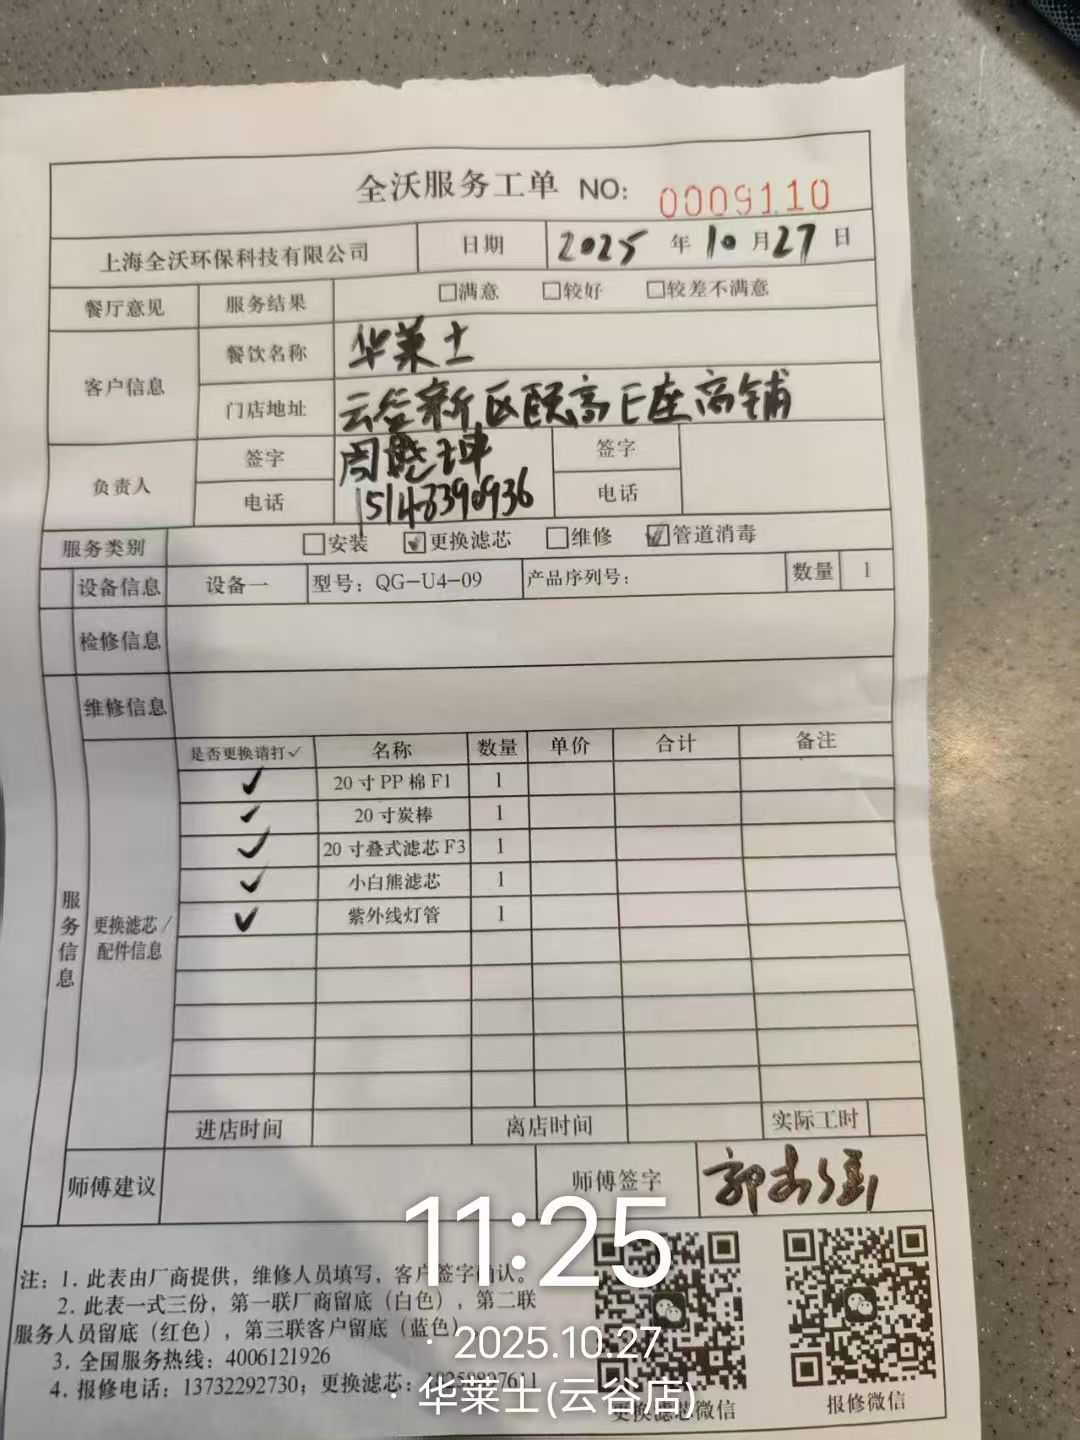 全沃服务工单 NO: 0009110
上海全沃环保科技有限公司 日期 2025 年 10 月 27 日
餐厅意见 服务结果 □满意 □较好 □较差不满意
客户信息 餐饮名称 华莱士
门店地址 云谷新区颐高E座商铺
负责人 签字 周 坤 签字
电话 电话
服务类别 □安装 ☑更换滤芯 □维修 ☑管道消毒
设备信息 设备一 型号：QG-U4-09 产品序列号： 数量 1
检修信息
维修信息
服务信息 更换滤芯/配件信息
是否更换请打✓ 名称 数量 单价 合计 备注
✓ 20寸PP棉F1 1
✓ 20寸炭棒 1
✓ 20寸叠式滤芯F3 1
✓ 小白熊滤芯 1
✓ 紫外线灯管 1
进店时间 离店时间 实际工时
师傅建议 师傅签字 郭
11:25
注：1. 此表由厂商提供，维修人员填写，客户签字确认。
2. 此表一式三份，第一联厂商留底（白色），第二联
服务人员留底（红色），第三联客户留底（蓝色）
3. 全国服务热线：4006121926
4. 报修电话：13732292730；更换滤芯：
· 2025.10.27
· 华莱士(云谷店)
更换滤芯微信 报修微信